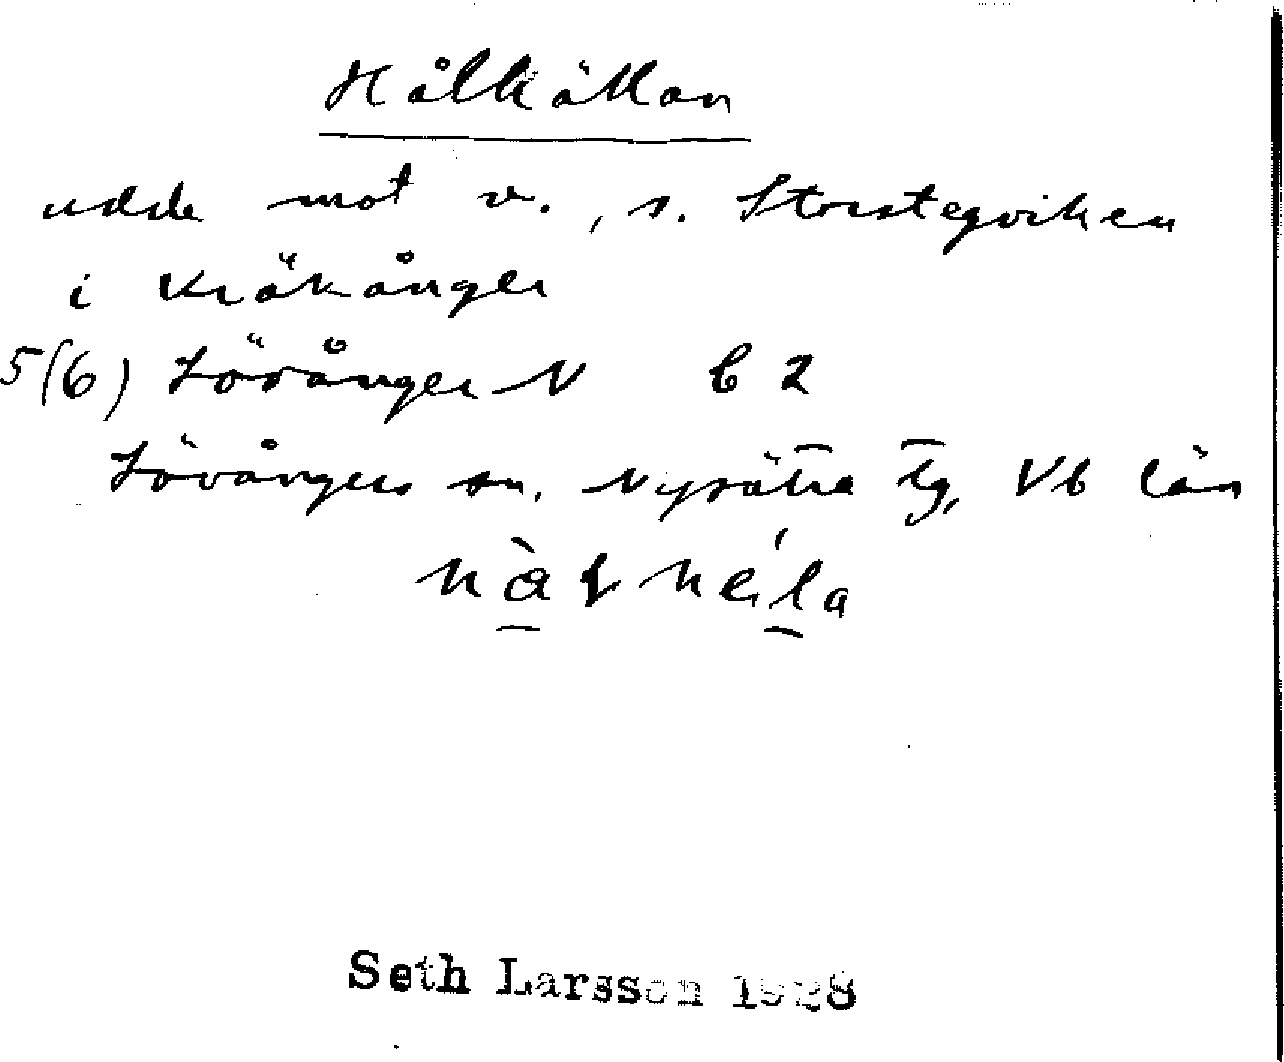 Hålkällan
udde mot v., s. Storstegviken
i Kräkånger
5(6) Lövånger N C 2
Lövångers sn. Nysätra tg, Vb län
Seth Larsson 1928